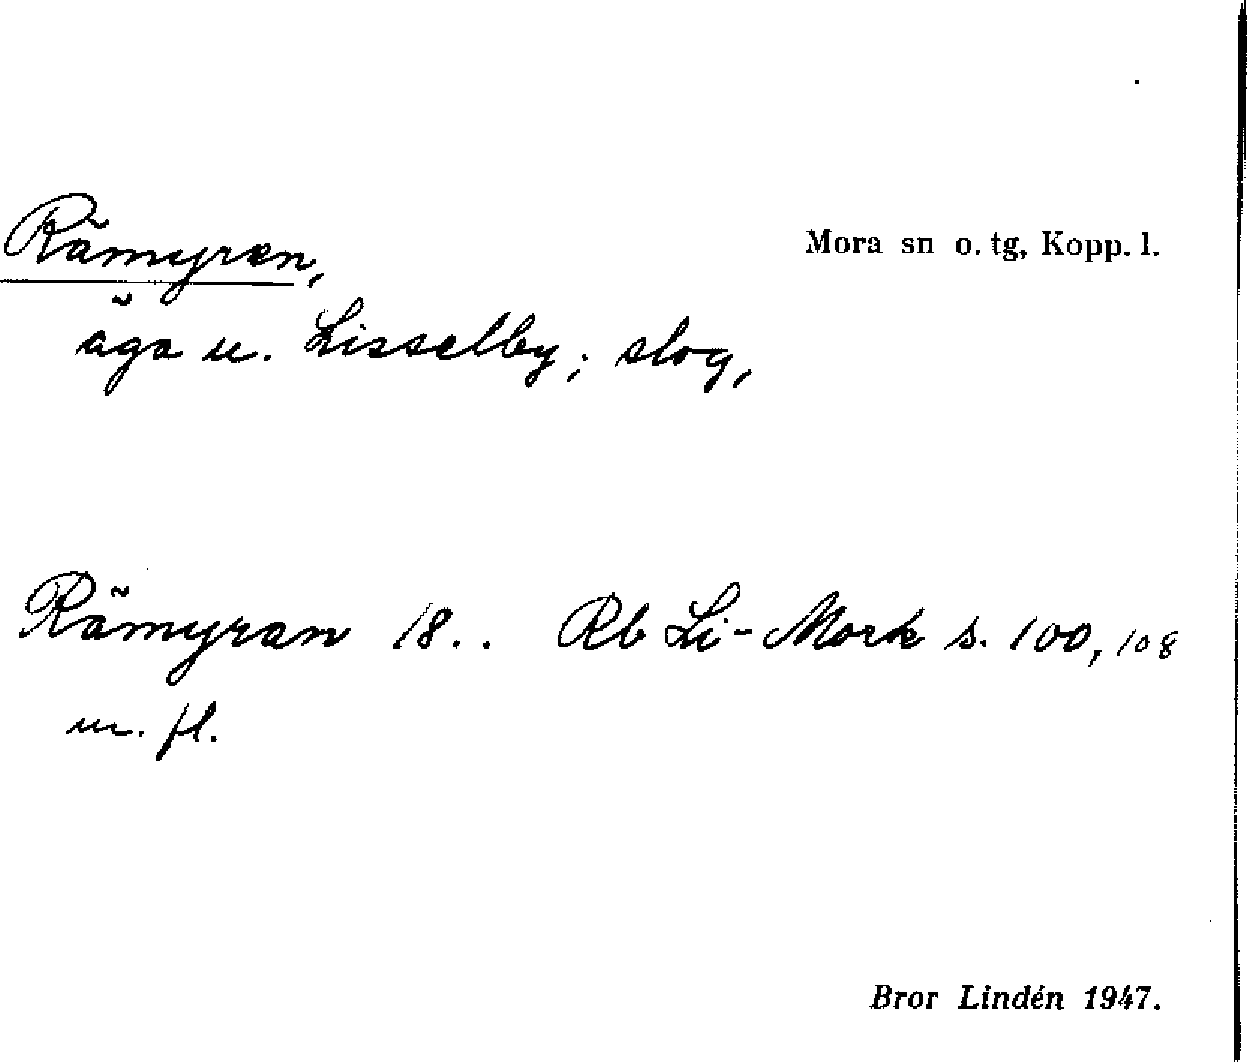 Rämyren,
Mora sn o. tg, Kopp. l.
äga u. Lisselby; slog,
Rämyran 18.. Rb Li-Mork s. 100, 108
m. fl.
Bror Lindén 1947.